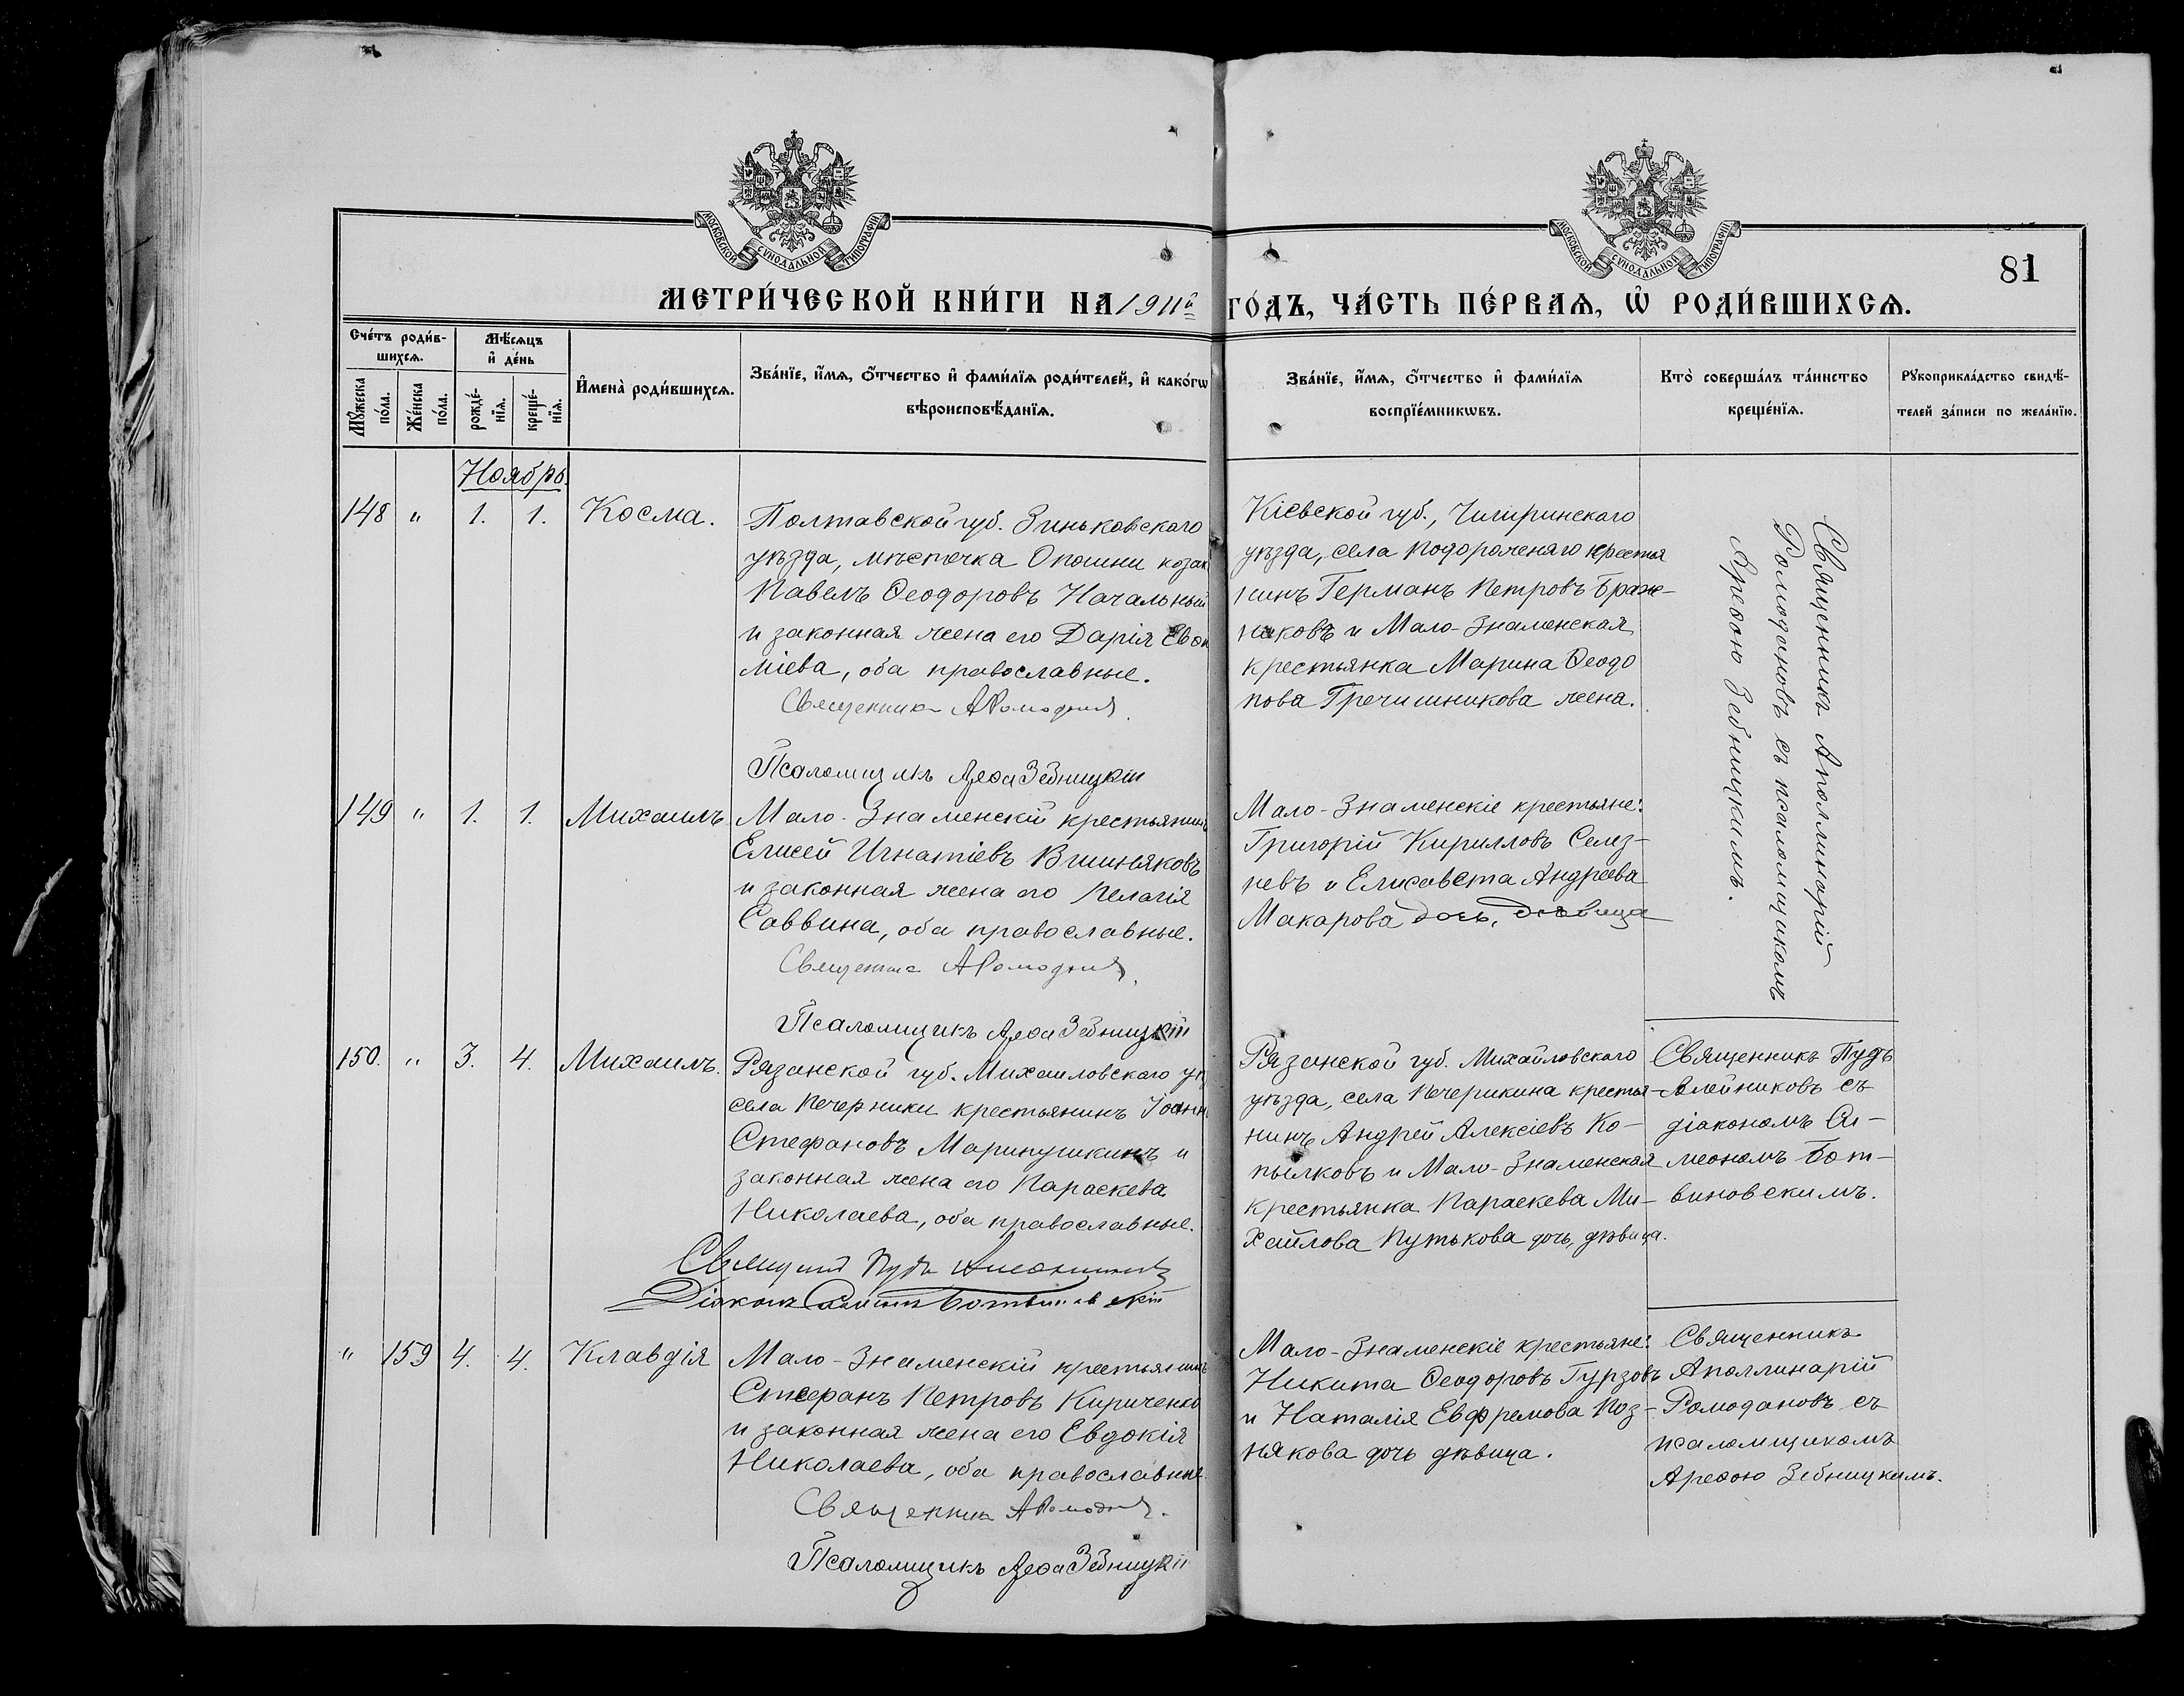 МОСКОВСКОЙ СѴНОДАЛЬНОЙ ТИПОГРАФІИ
МОСКОВСКОЙ СѴНОДАЛЬНОЙ ТИПОГРАФІИ
81
МЕТРИ́ЧЕСКОЙ КНИ́ГИ НА 1911й ГО́ДЪ, ЧА́СТЬ ПЕ́РВАѦ, Ѽ РОДИ́ВШИХСѦ.
Сче́тъ роди́в-
шихсѧ.
Мѣ́сѧцъ
и҆ де́нь
Мꙋ́жеска
по́ла.
Же́нска
по́ла.
рожде́-
нїѧ.
креще́-
нїѧ.
И҆мена̀ роди́вшихсѧ.
Зва́нїе, и҆́мѧ, ѻ҆́тчество и҆ фами́лїѧ роди́телей, и҆ како́гѡ
вѣроисповѣ́данїѧ.
Зва́нїе, и҆́мѧ, ѻ҆́тчество и҆ фами́лїѧ
воспрїе́мникѡвъ.
Кто̀ соверша́лъ та́инство
креще́нїѧ.
Рꙋкоприкла́дство свидѣ́-
телей за́писи по жела́нїю.
Ноябрь.
148 " 1. 1. Косма.
Полтавской губ. Зиньковскаго
уѣзда, мѣстечка Опошни козак
Павелъ Ѳеодоровъ Начальный
и законная жена его Дарія Евѳи
міева, оба православные.
Священникъ А Ромоданов
Псаломщикъ Ареѳа Зебницкій
Кіевской губ., Чигиринскаго
уѣзда, села Подорожняго крестья
нинъ Германъ Петровъ Браж-
никовъ и Мало-Знаменская
крестьянка Марина Ѳеодо
рова Гречишникова жена.
Священникъ Аполлинарій
Ромодановъ съ псаломщикомъ
Ареѳою Зебницкимъ.
149 " 1. 1. Михаилъ
Мало-Знаменскій крестьянинъ
Елисей Игнатіевъ Вишняковъ
и законная жена его Пелагія
Саввина, оба православные.
Священникъ А Ромоданов
Псаломщикъ Ареѳа Зебницкій
Мало-Знаменскіе крестьяне:
Григорій Кирилловъ Селез-
невъ и Елисавета Андреева
Макарова дочь, дѣвица
150. " 3. 4. Михаилъ.
Рязанской губ. Михаиловскаго уѣ
села Печерники крестьянинъ Іоанн
Стефановъ Маринушкинъ и
законная жена его Параскева
Николаева, оба православные.
Священник Пудъ Алейников
Діаконъ Симеонъ Ботвиновскій
Рязанской губ. Михайловскаго
уѣзда, села Печерикина крестья-
нинъ Андрей Алексіевъ Ко-
пылковъ и Мало-Знаменская
крестьянка Параскева Ми-
хайлова Путькова дочь, дѣвица.
Священникъ Пудъ
Алейниковъ съ
діакономъ Си-
меономъ Бот-
виновскимъ.
" 159 4. 4. Клавдія
Мало-Знаменскій крестьянинъ
Стефанъ Петровъ Кириченко
и законная жена его Евдокія
Николаева, оба православные
Священникъ А Ромоданов.
Псаломщикъ Ареѳа Зебницкій
Мало-Знаменскіе крестьяне:
Никита Ѳеодоровъ Гурзовъ
и Наталія Евфремова Поз-
някова дочь дѣвица.
Священникъ
Аполлинарій
Ромодановъ съ
псаломщикомъ
Ареѳою Зебницкимъ.